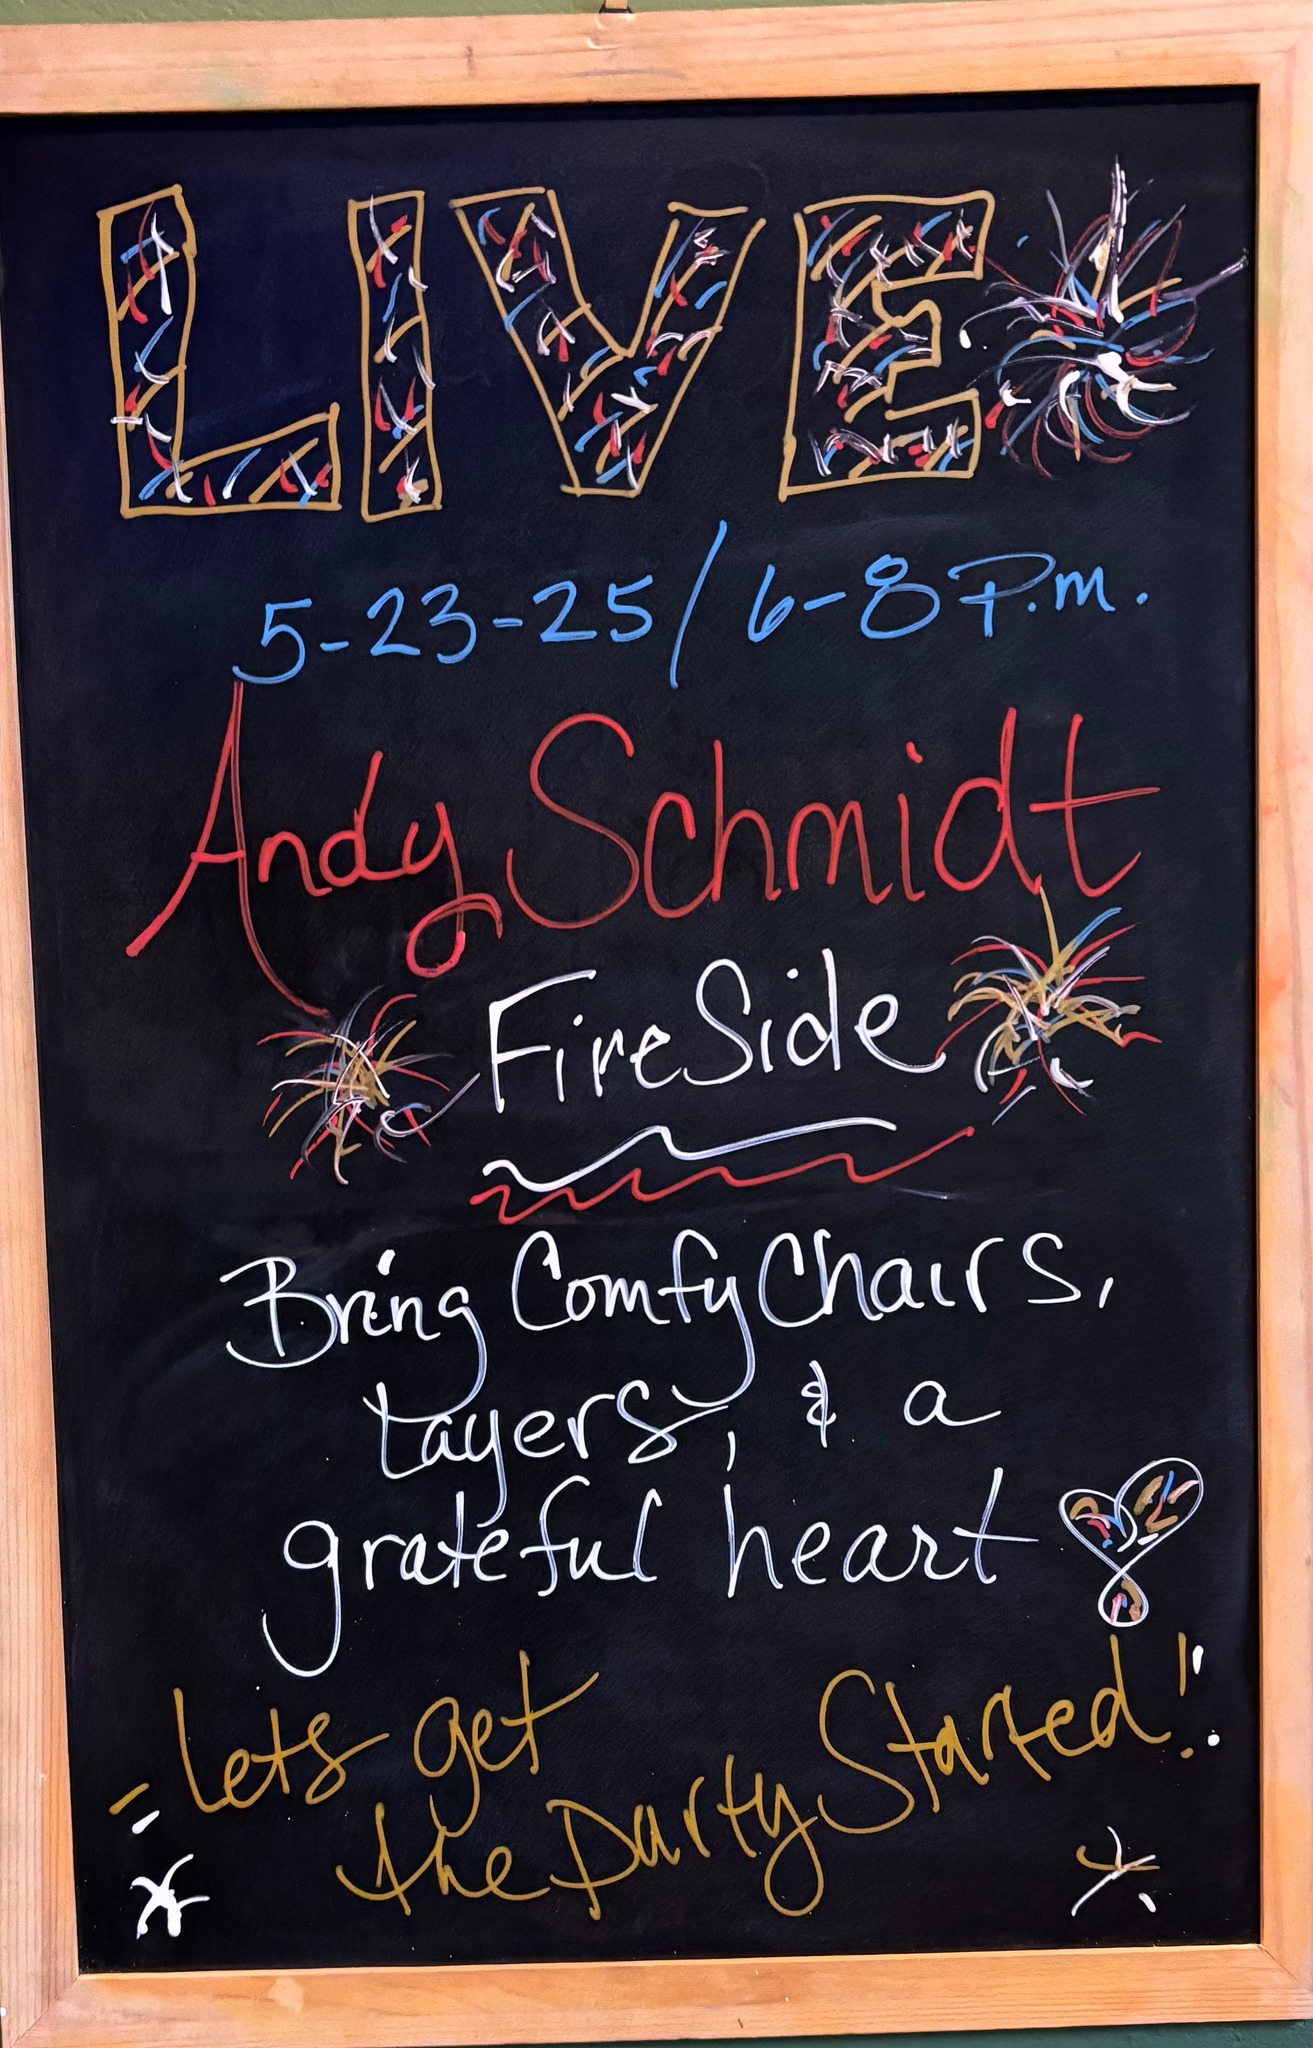 LIVE
5-23-25/6-8 P.m.
Andy Schmidt
FireSide
Bring Comfy Chairs,
Layers, & a
grateful heart
Lets get
the Party Started!!